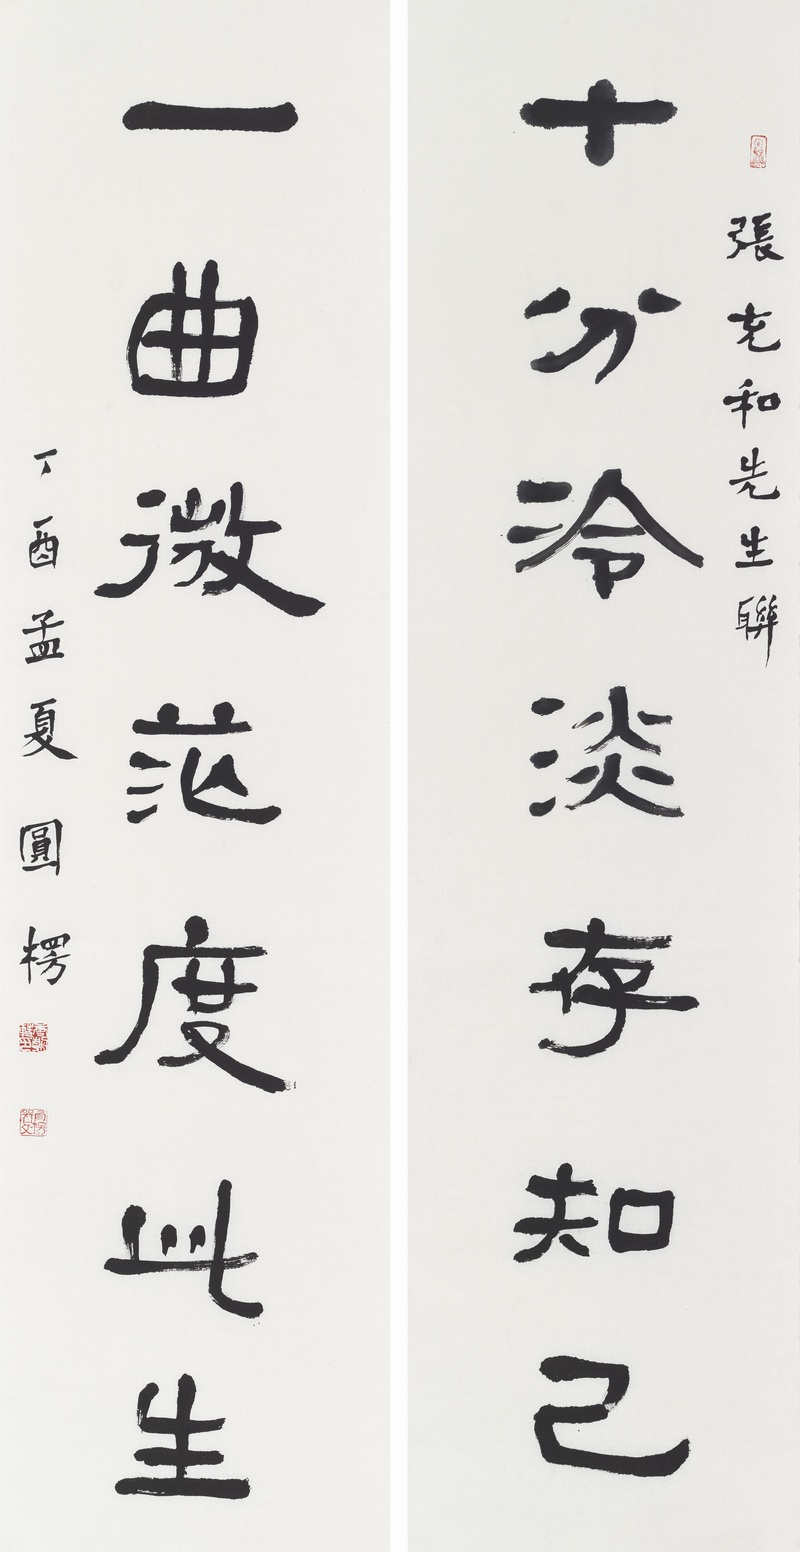 張充和先生聯
十分冷淡存知己
一曲微茫度此生
丁酉孟夏圓楞